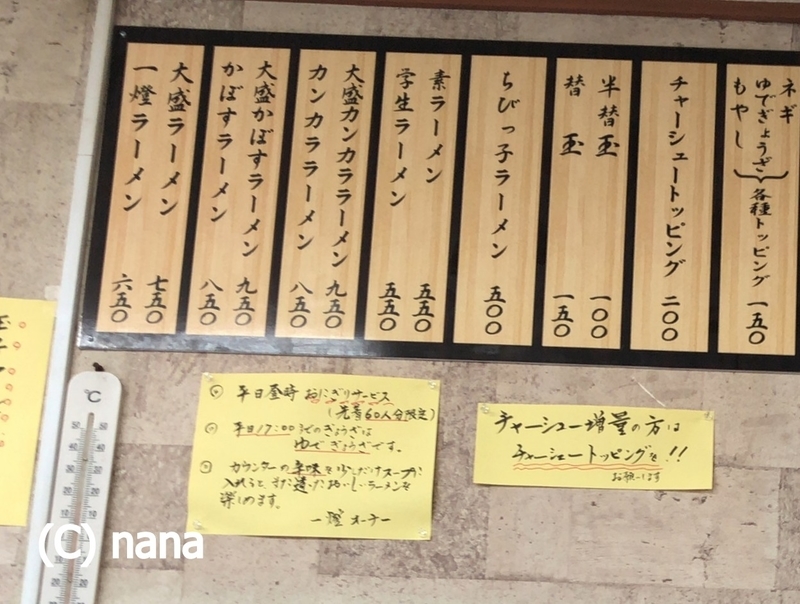 ネギ
ゆでぎょうざ
もやし
各種トッピング 一五〇
チャーシュートッピング 二〇〇
半替玉 一〇〇
替玉 一五〇
ちびっ子ラーメン 五〇〇
素ラーメン 五五〇
学生ラーメン 五五〇
大盛カンカラーメン 九五〇
カンカラーメン 八五〇
大盛かぼすラーメン 九五〇
かぼすラーメン 八五〇
大盛ラーメン 七五〇
一燈ラーメン 六五〇
◎ 平日昼時 おにぎりサービス
(先着60人分限定)
◎ 平日17:00までのぎょうざは
ゆでぎょうざです。
◎ カウンターの辛味を少しだけスープに
入れると、また違ったおいしいラーメンを
楽しめます。
一燈 オーナー
チャーシュー増量の方は
チャーシュートッピングを!!
お願いします
℃
50 50
40
30
20
10
20 20
(C) nana